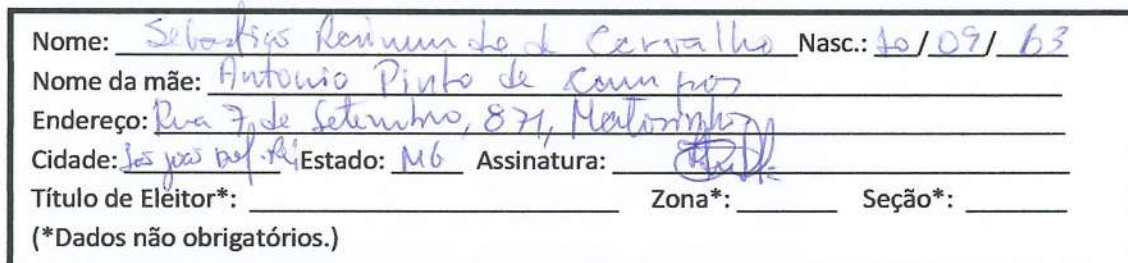 Nome: Sebastião Raimundo de Carvalho Nasc.: 10/09/63
Nome da mãe: Antonio Pinto de Campos
Endereço: Rua 7 de Setembro, 871, Matosinhos
Cidade: São João Del-Rei Estado: MG Assinatura:
Título de Eleitor*: Zona*: Seção*:
(*Dados não obrigatórios.)